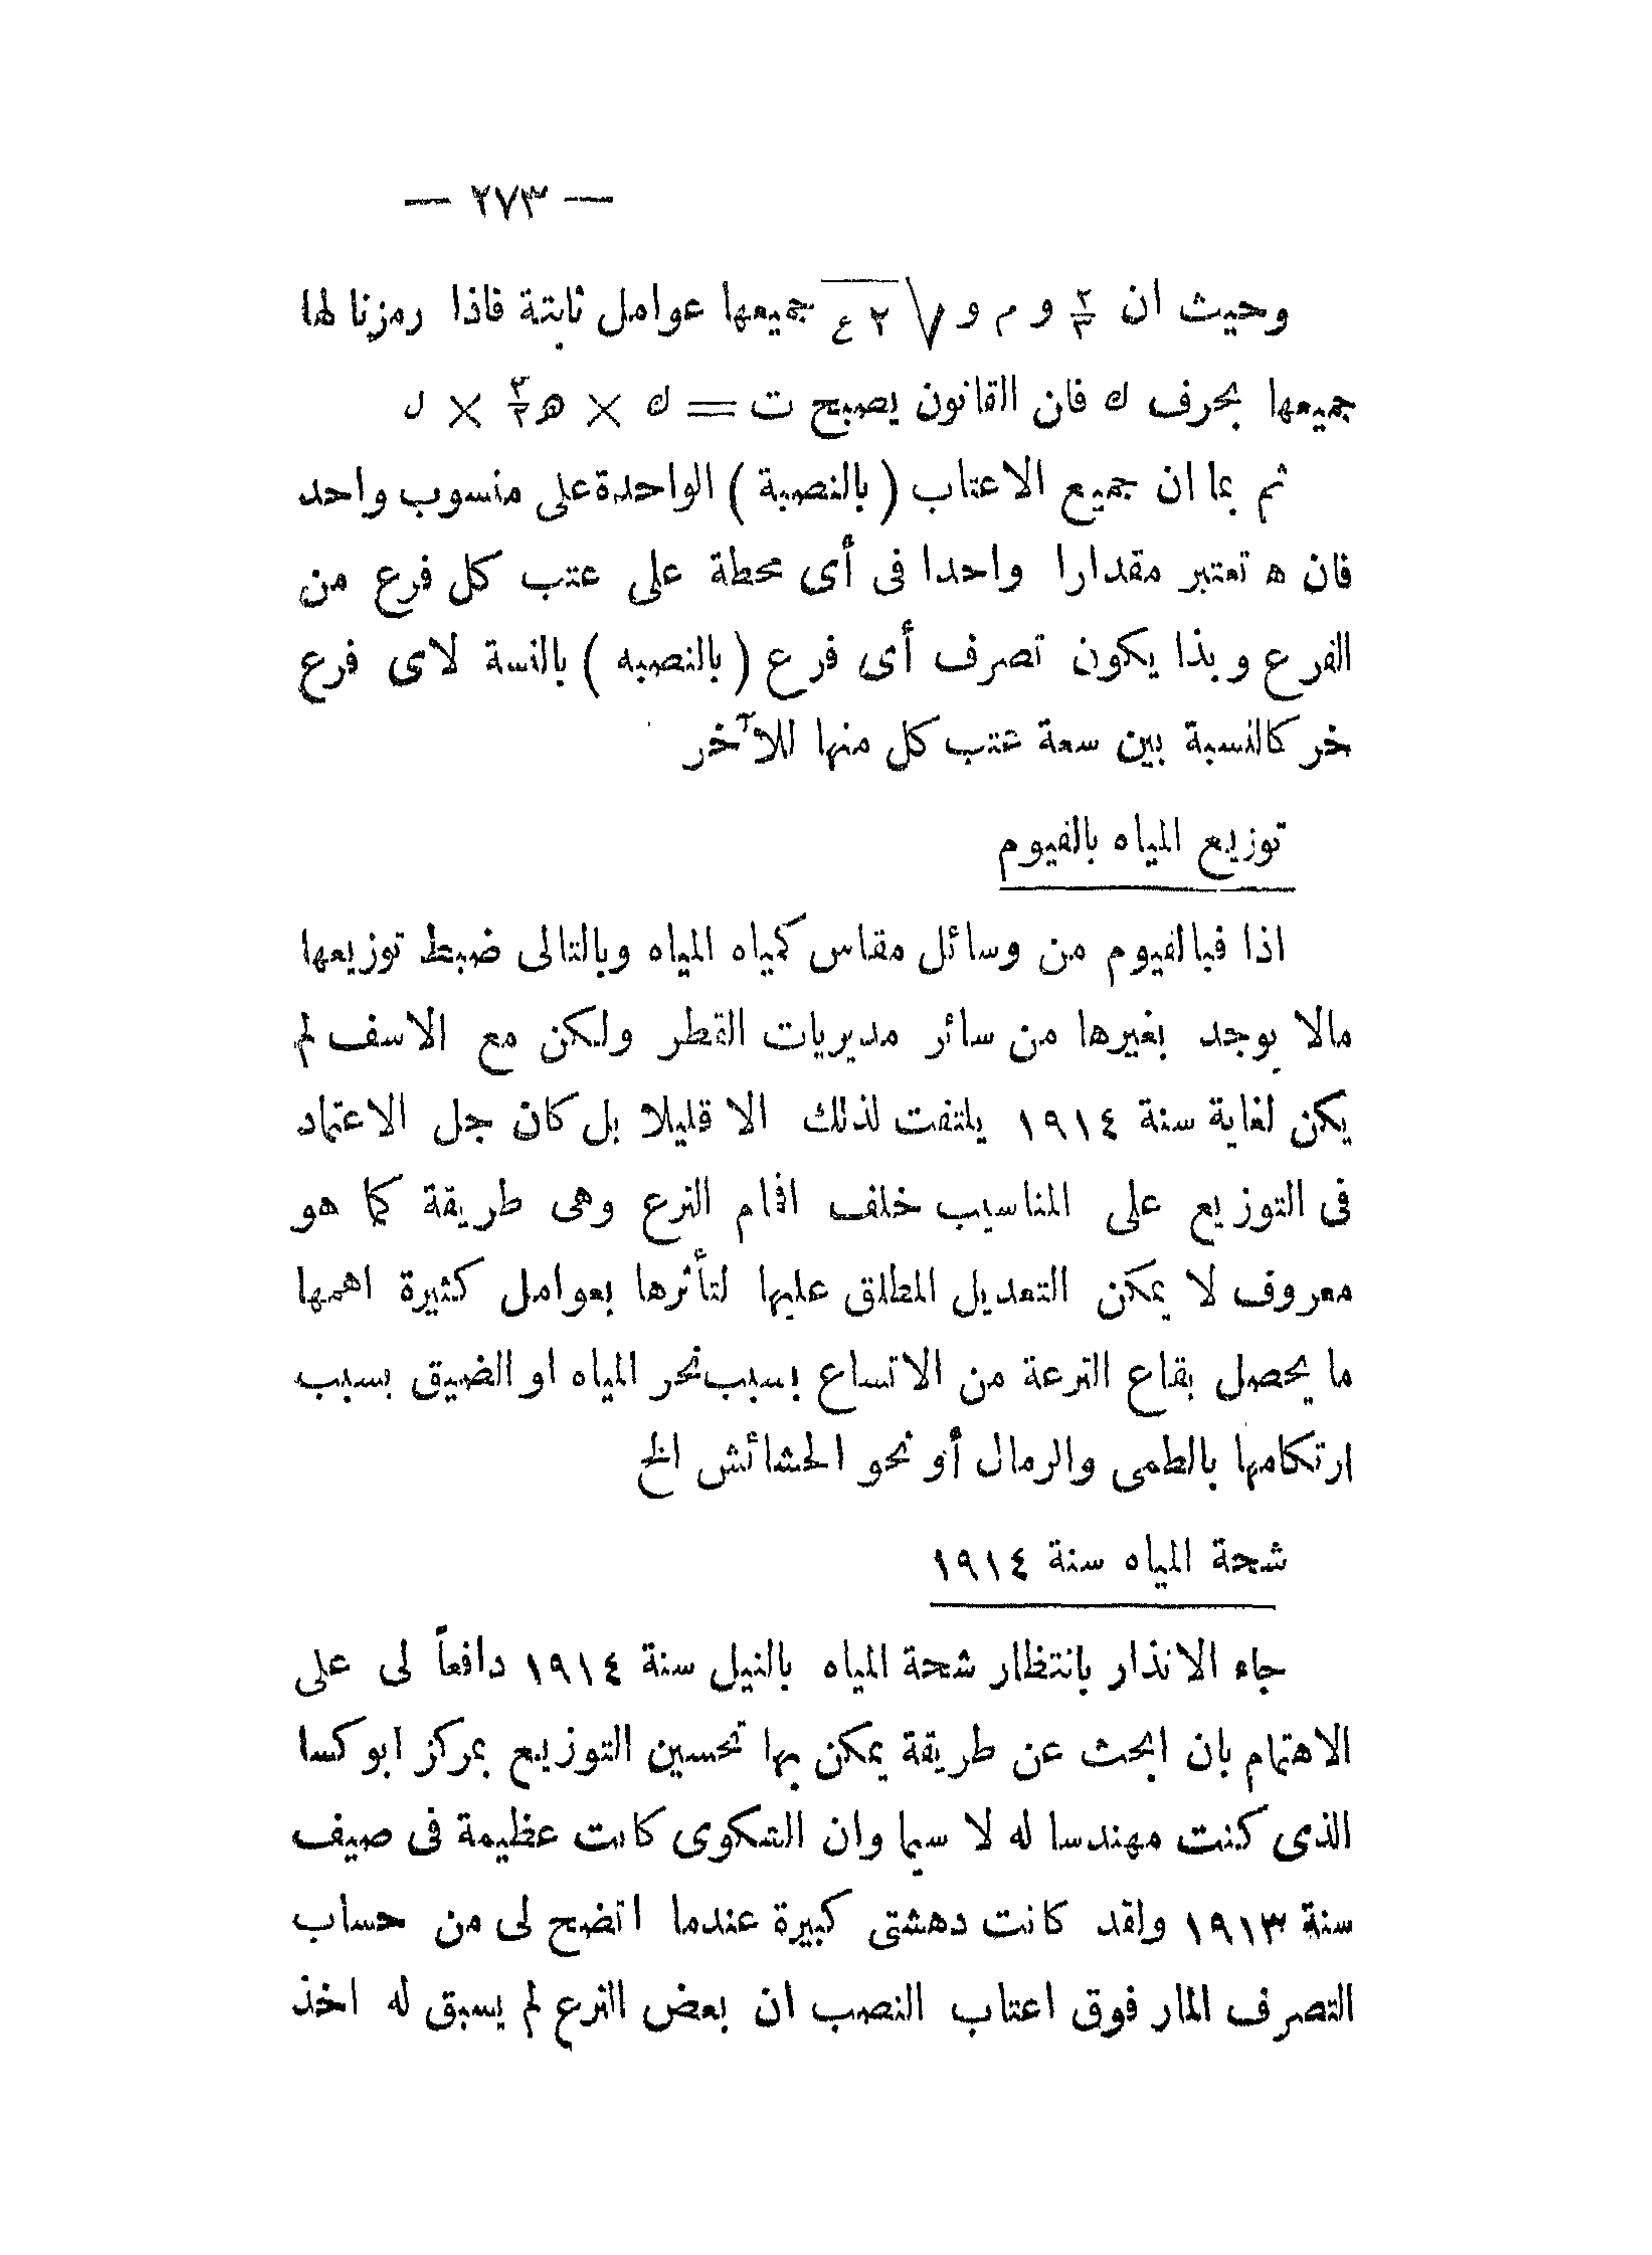 — ٢٧٣ —
وحيث ان ٢/٣ و م و √٢ع جميعها عوامل ثابتة فاذا رمزنا لها
جميعها بحرف ك فان القانون يصبح ت = ك × ه٣/٢ × ل
ثم بما ان جميع الاعتاب ( بالنصبة ) الواحدة على منسوب واحد
فان ه تعتبر مقدارا واحدا فى أى محطة على عتب كل فرع من
الفرع وبذا يكون تصرف أى فرع ( بالنصبه ) بالنسة لاى فرع
خر كالنسبة بين سعة عتب كل منها للآخر
توزيع المياه بالفيوم
اذا فبالفيوم من وسائل مقاس كمياه المياه وبالتالى ضبط توزيعها
مالا يوجد بغيرها من سائر مديريات القطر ولكن مع الاسف لم
يكن لغاية سنة ١٩١٤ يلتفت لذلك الا قليلا بل كان جل الاعتماد
فى التوزيع على المناسيب خلف افمام الترع وهى طريقة كما هو
معروف لا يمكن التعديل المطلق عليها لتأثرها بعوامل كثيرة اهمها
ما يحصل بقاع الترعة من الاتساع بسبب نحر المياه او الضيق بسبب
ارتكامها بالطمى والرمال أو نحو الحشائش الخ
شحة المياه سنة ١٩١٤
جاء الانذار بانتظار شحة المياه بالنيل سنة ١٩١٤ دافعاً لى على
الاهتمام بان ابحث عن طريقة يمكن بها تحسين التوزيع بمركز ابو كسا
الذى كنت مهندسا له لا سيما وان الشكوى كانت عظيمة فى صيف
سنة ١٩١٣ ولقد كانت دهشتى كبيرة عندما اتضح لى من حساب
التصرف المار فوق اعتاب النصب ان بعض الترع لم يسبق له اخذ